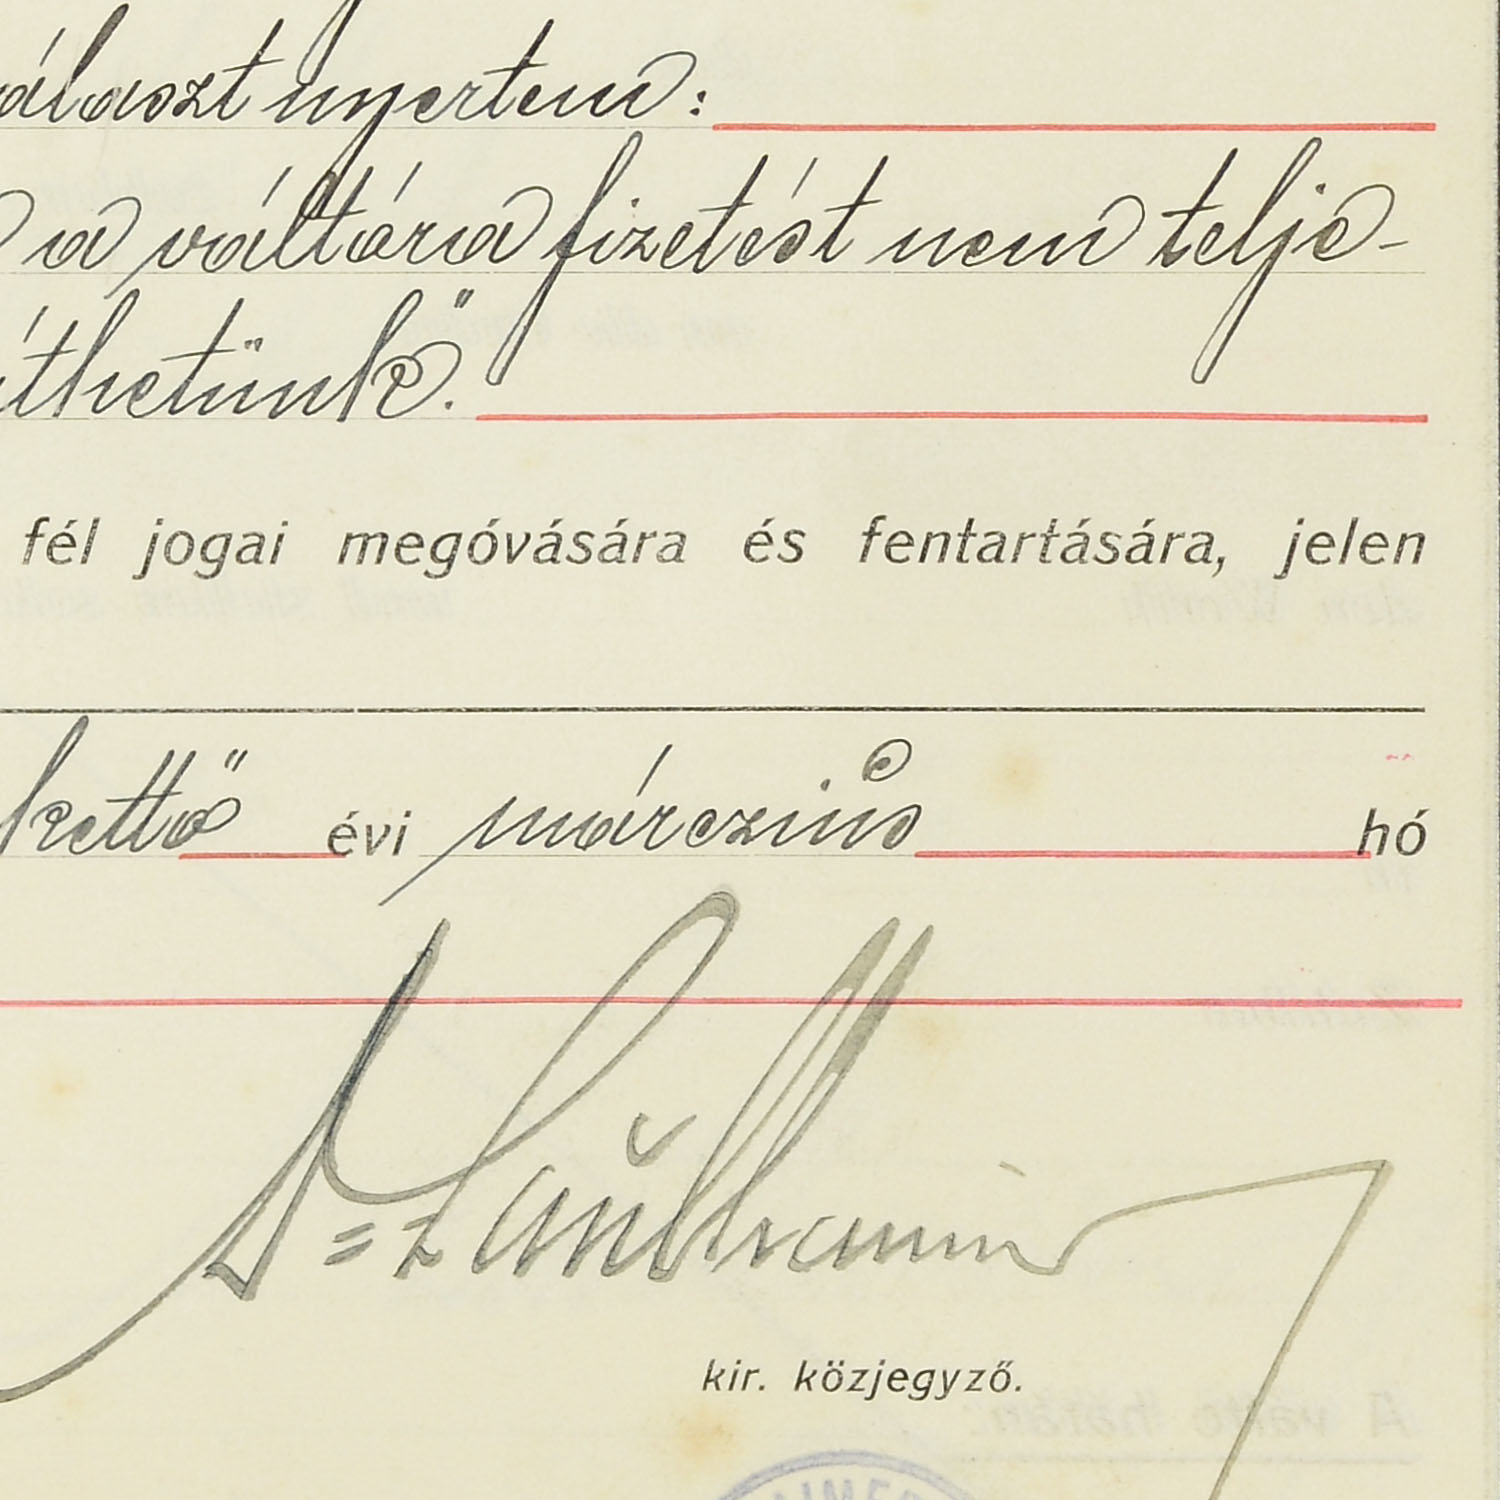 választ nyertem:
a váltóra fizetést nem telje-
íthetünk".
fél jogai megóvására és fentartására, jelen
kettő évi márczius hó
kir. közjegyző.